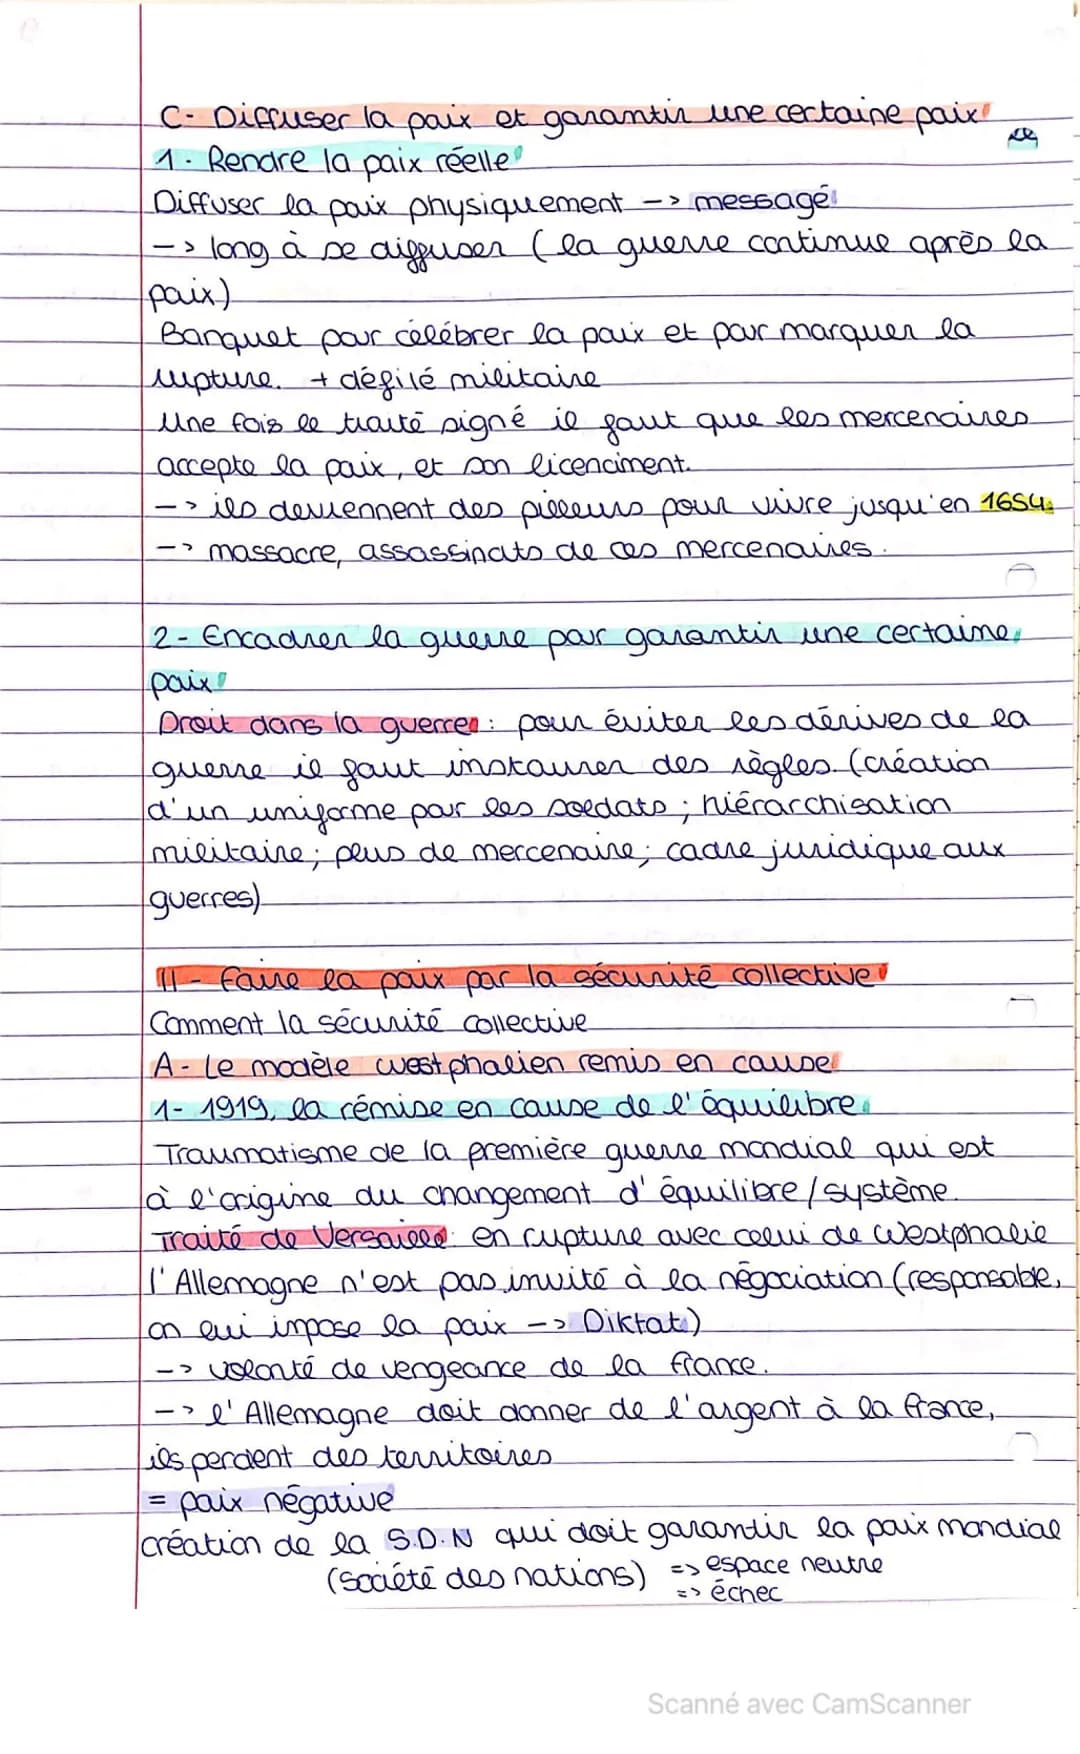 C- Diffuser la paix et garantir une certaine paix
1. Rendre la paix réelle
Diffuser la paix physiquement -> message
-> long à se diffuser (la guerre continue après la
paix)
Banquet pour célébrer la paix et pour marquer la
rupture. + défilé militaire
Une fois le traité signé il faut que les mercenaires
accepte la paix, et son licenciment.
-> ils deviennent des pilleurs pour vivre jusqu'en 1654.
-> massacre, assassinats de ces mercenaires.
2- Encadrer la guerre pour garantir une certaine
paix
Droit dans la guerre : pour éviter les dérives de la
guerre il faut instaurer des règles. (création
d'un uniforme pour les soldats ; hiérarchisation
militaire ; plus de mercenaire ; cadre juridique aux
guerres)
II- Faire la paix par la sécurité collective
Comment la sécurité collective
A- Le modèle westphalien remis en cause
1- 1919, la rémise en cause de l'équilibre
Traumatisme de la première guerre mondial qui est
à l'origine du changement d'équilibre/système.
Traité de Versaille : en rupture avec celui de Westphalie
l'Allemagne n'est pas invité à la négociation (responsable,
on lui impose la paix -> Diktat)
-> volonté de vengeance de la france.
-> l'Allemagne doit donner de l'argent à la france,
ils perdent des territoires
= paix négative
création de la S.D.N qui doit garantir la paix mondial
(Société des nations) => espace neutre
=> échec
Scanné avec CamScanner